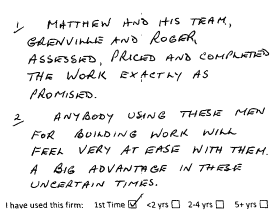 1, MATTHEW AND HIS TEAM,
GRENVILLE AND ROGER
ASSESSED, PRICED AND COMPLETED
THE WORK EXACTLY AS
PROMISED.
2 ANYBODY USING THESE MEN
FOR BUILDING WORK WILL
FEEL VERY AT EASE WITH THEM.
A BIG ADVANTAGE IN THESE
UNCERTAIN TIMES.
I have used this firm: 1st Time ☑ <2 yrs ☐ 2-4 yrs ☐ 5+ yrs ☐